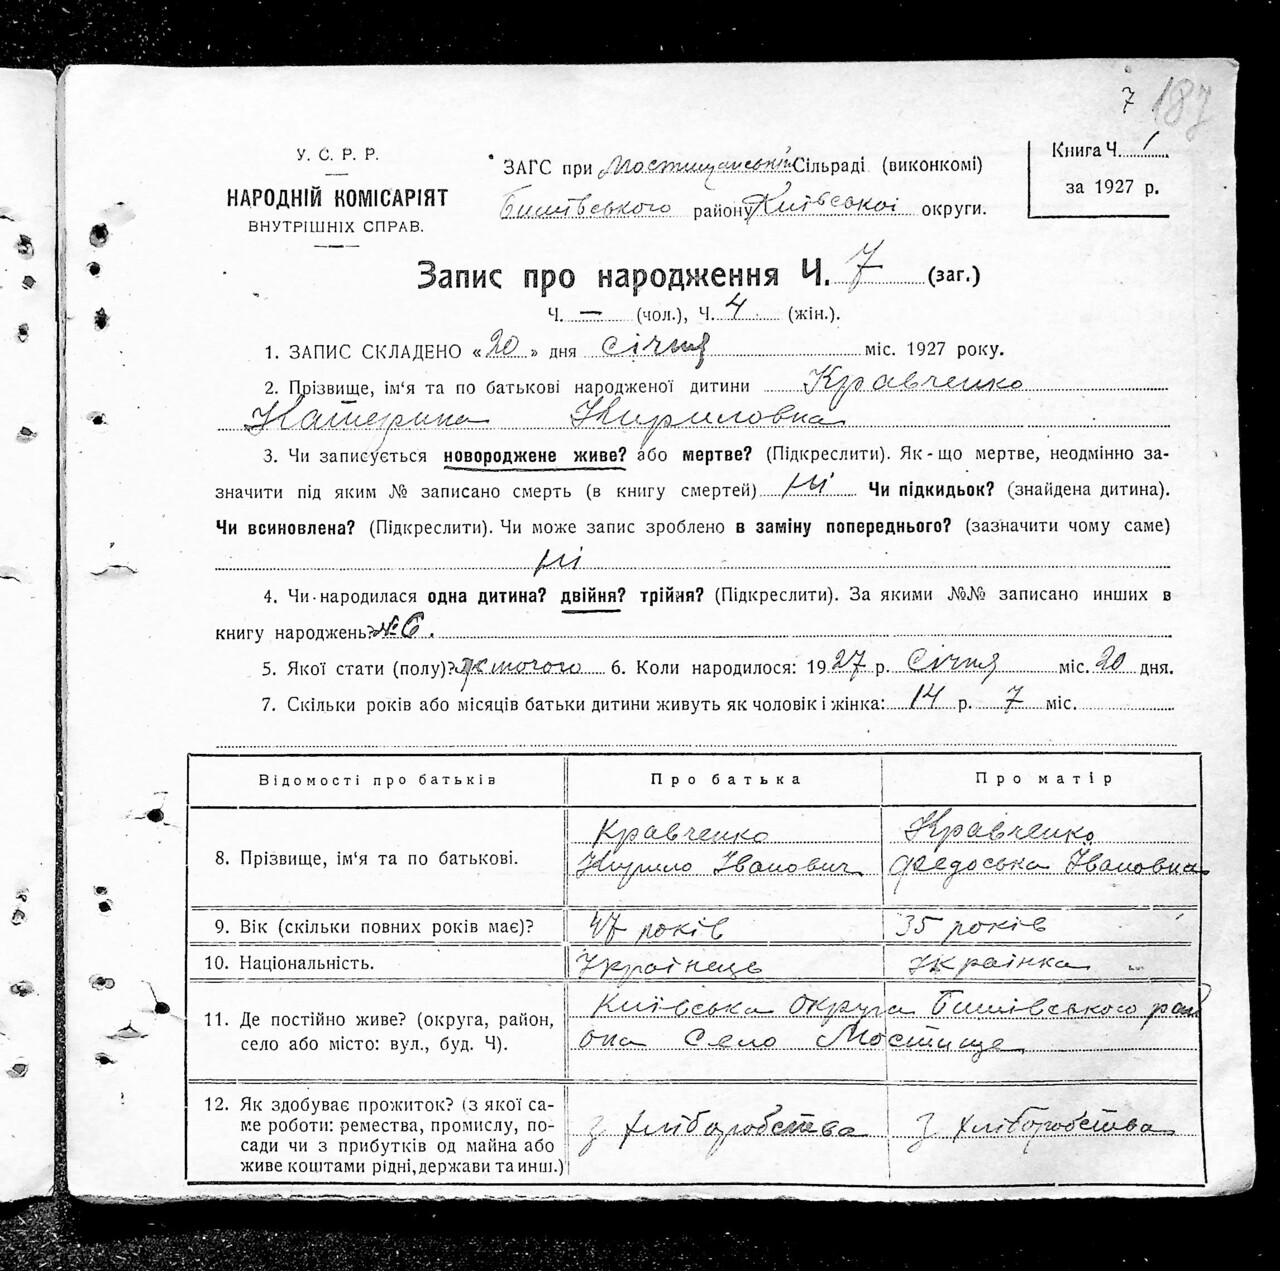 7 187
У. С. Р. Р.
НАРОДНІЙ КОМІСАРІЯТ
ВНУТРІШНІХ СПРАВ.
ЗАГС при Мостищанській Сільраді (виконкомі)
Бишівського району Київської округи.
Книга Ч. 1
за 1927 р.
Запис про народження Ч. 7 (заг.)
Ч. — (чол.), Ч. 4 (жін.).
1. ЗАПИС СКЛАДЕНО «20» дня січня міс. 1927 року.
2. Прізвище, ім'я та по батькові народженої дитини Кравченко
Катерина Кириловна
3. Чи записується новороджене живе? або мертве? (Підкреслити). Як-що мертве, неодмінно за-
значити під яким № записано смерть (в книгу смертей) ні Чи підкидьок? (знайдена дитина).
Чи всиновлена? (Підкреслити). Чи може запис зроблено в заміну попереднього? (зазначити чому саме)
ні
4. Чи народилася одна дитина? двійня? трійня? (Підкреслити). За якими №№ записано инших в
книгу народжень? № 6.
5. Якої стати (полу)? 6. Коли народилося: 1927 р. січня міс. 20 дня.
7. Скільки років або місяців батьки дитини живуть як чоловік і жінка: 14 р. 7 міс.
Відомості про батьків Про батька Про матір
8. Прізвище, ім'я та по батькові. Кравченко Кирило Іванович Кравченко Федоська Івановна
9. Вік (скільки повних років має)? 47 років 35 років
10. Національність. Українець Українка
11. Де постійно живе? (округа, район, Київська округа Бишівського рай
село або місто: вул., буд. Ч). она село Мостище
12. Як здобуває прожиток? (з якої са-
ме роботи: ремества, промислу, по-
сади чи з прибутків од майна або
живе коштами рідні, держави та инш.) з хліборобства з хліборобства